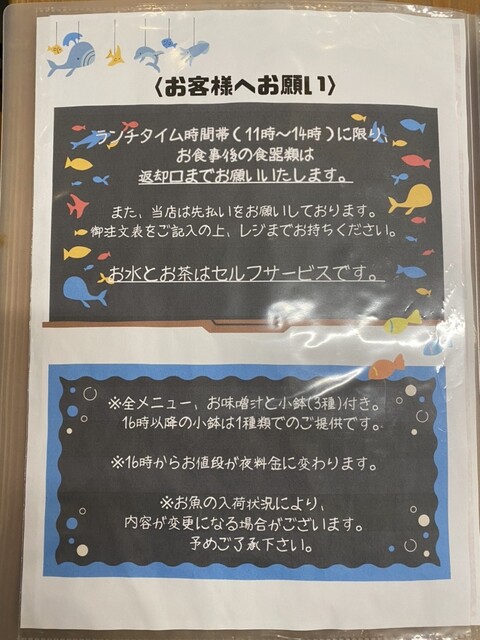 〈お客様へお願い〉
ランチタイム時間帯(11時～14時)に限り、
お食事後の食器類は
返却口までお願いいたします。
また、当店は先払いをお願いしております。
御注文表をご記入の上、レジまでお持ちください。
お水とお茶はセルフサービスです。
※全メニュー、お味噌汁と小鉢(3種)付き。
16時以降の小鉢は1種類でのご提供です。
※16時からお値段が夜料金に変わります。
※お魚の入荷状況により、
内容が変更になる場合がございます。
予めご了承下さい。